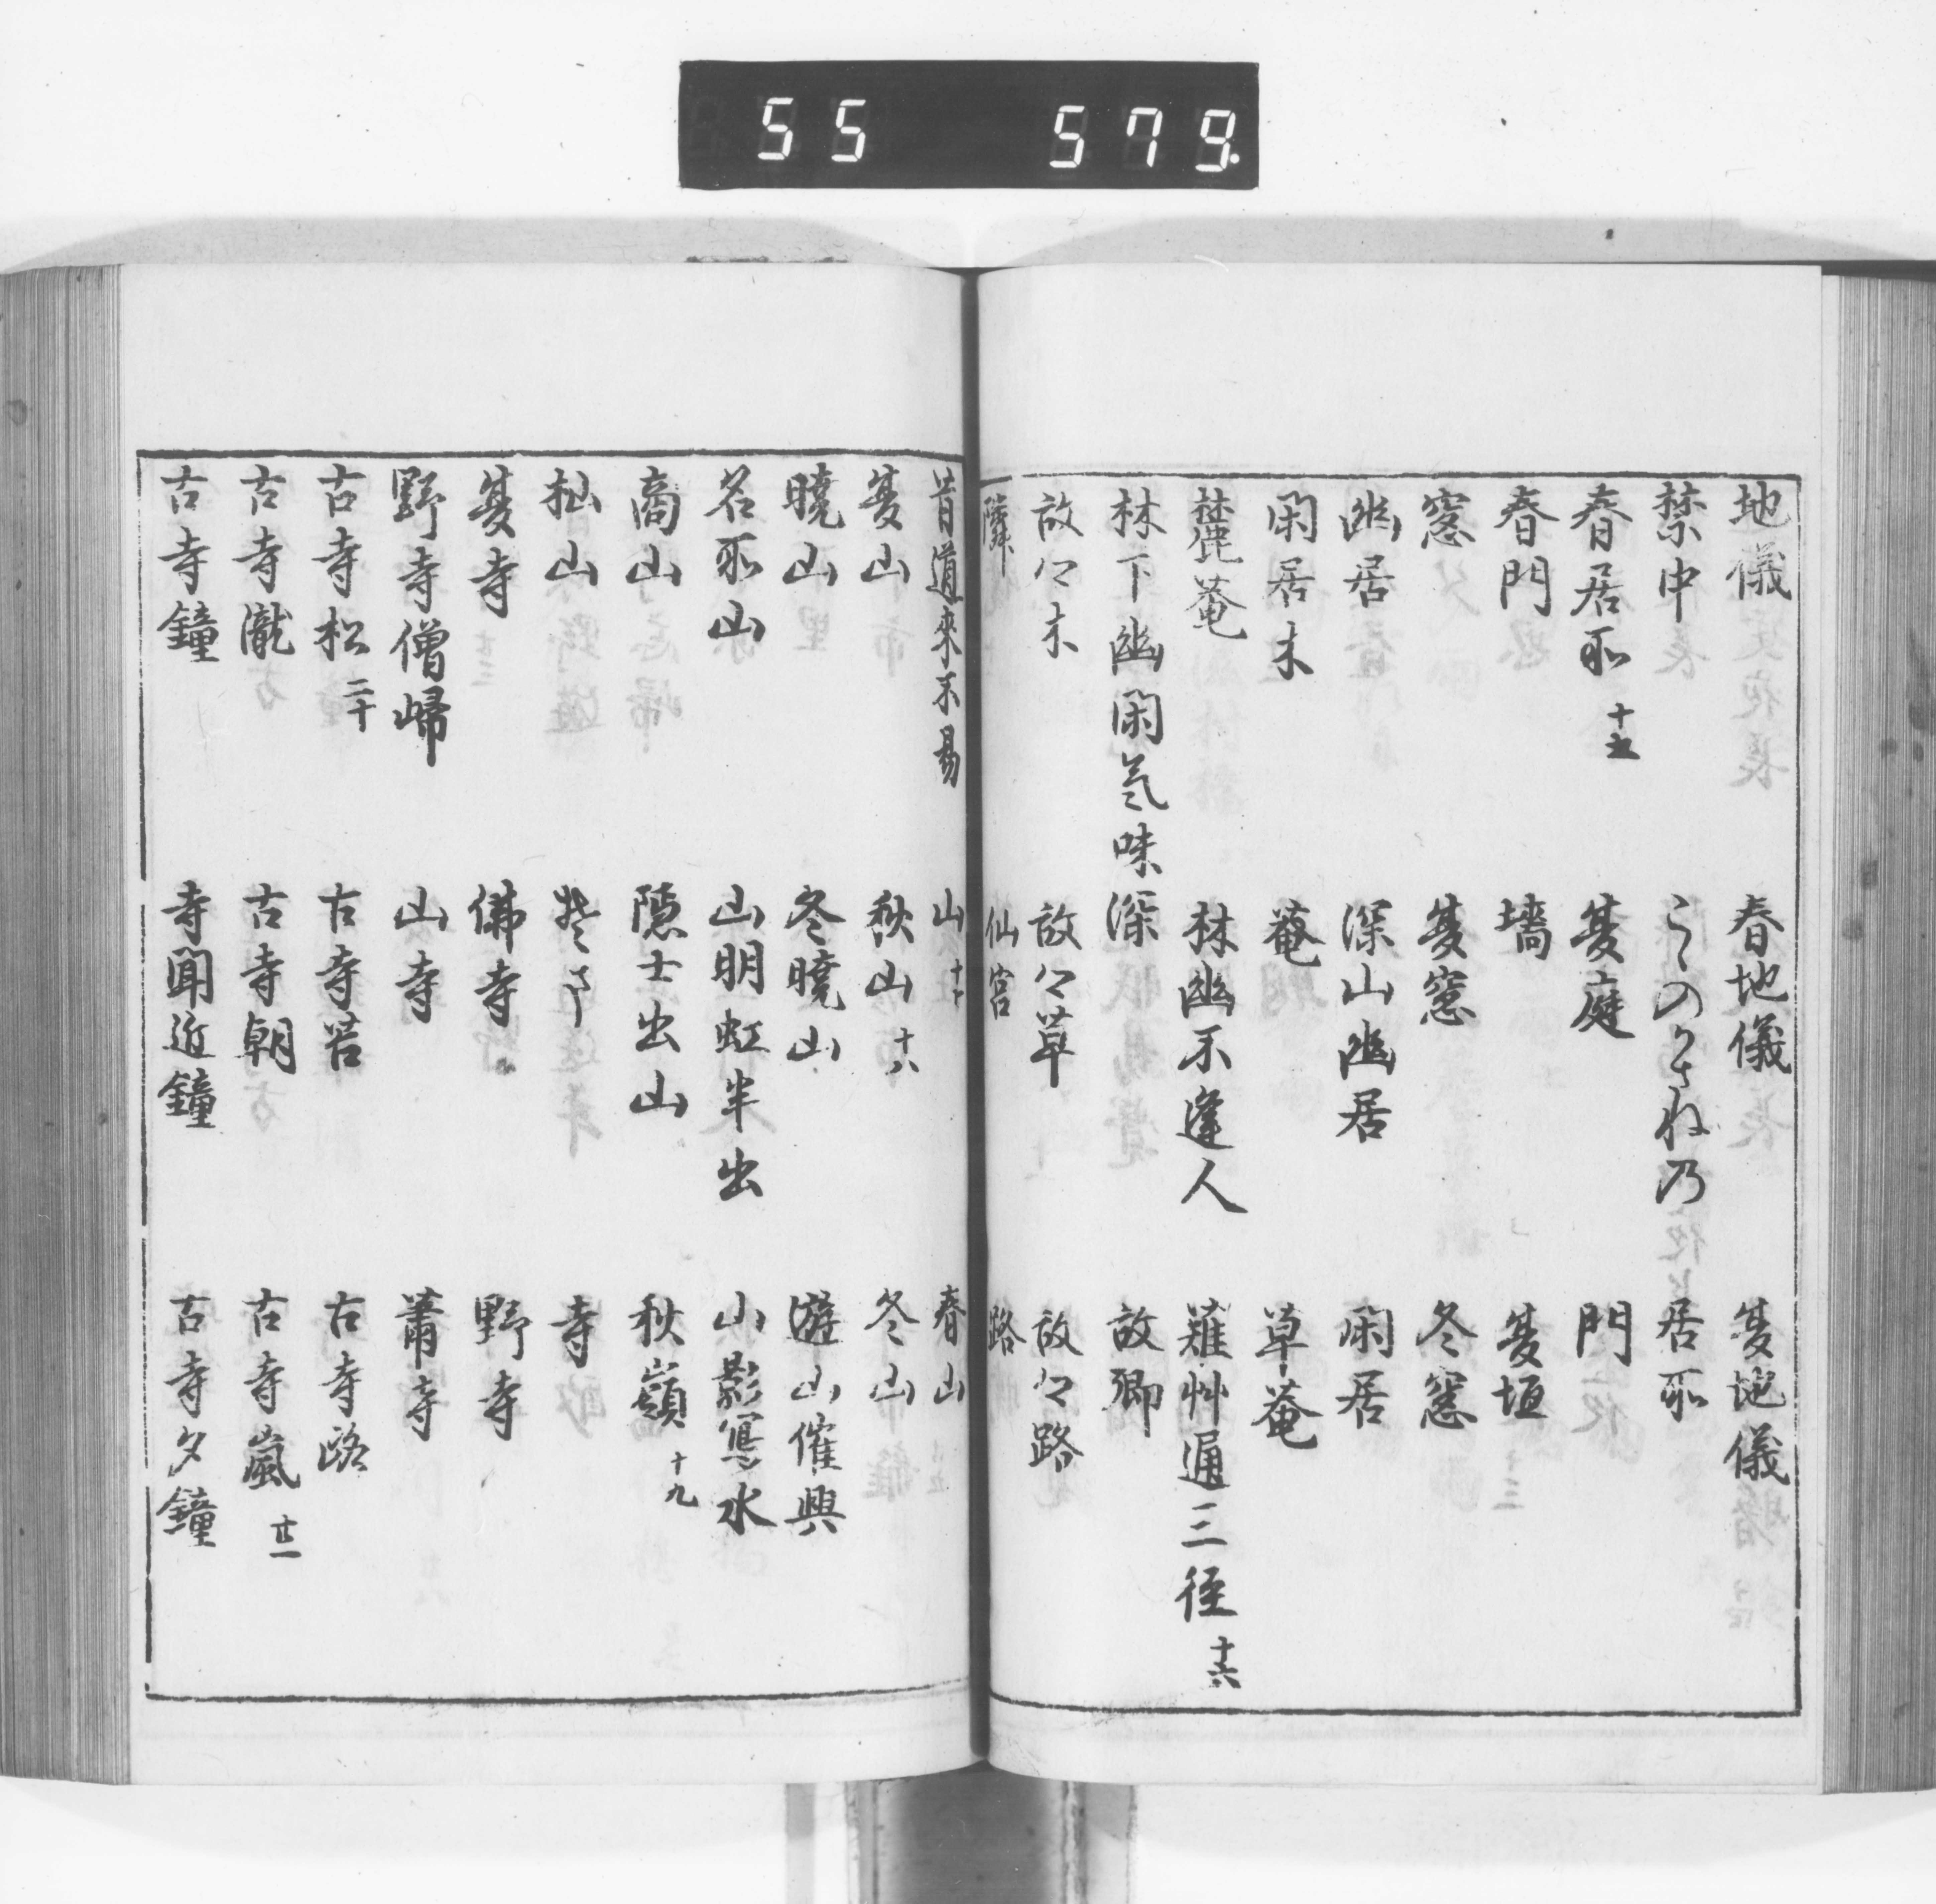 55 579.
地儀 春地儀 夏地儀
禁中 こゝのかさねの 居所
春居所 十五 夏庭 門
春門 墻 夏垣
窓 夏窓 冬窓
幽居 深山幽居 閑居
閑居木 菴 草菴
麓菴 林幽不逢人 薙艸通三径 十六
林下幽閑氣味深 故郷
故々木 故々草 故々路
隣 仙宮 路
昔道來不易 山 春山
夏山 秋山 十八 冬山
曉山 冬曉山 遊山催興
名所山 山明虹半出 山影寫水
商山 隠士出山 秋嶺 十九
杣山 寺
夏寺 佛寺 野寺
野寺僧帰 山寺 蕭寺
古寺松 二十 古寺苔 古寺路
古寺瀧 古寺朝 古寺嵐 廿一
古寺鐘 寺聞近鐘 古寺夕鐘